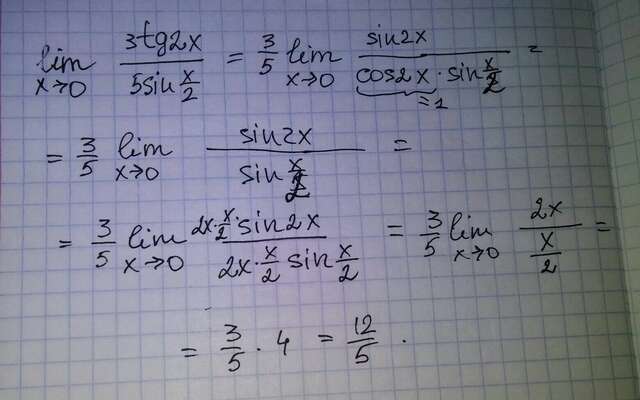 lim x→0 3tg2x / 5sin x/2 = 3/5 lim x→0 sin2x / cos2x · sin x/2 =
=1
= 3/5 lim x→0 sin2x / sin x/2 =
= 3/5 lim x→0 2x· x/2 · sin2x / 2x· x/2 sin x/2 = 3/5 lim x→0 2x / x/2 =
= 3/5 · 4 = 12/5 .